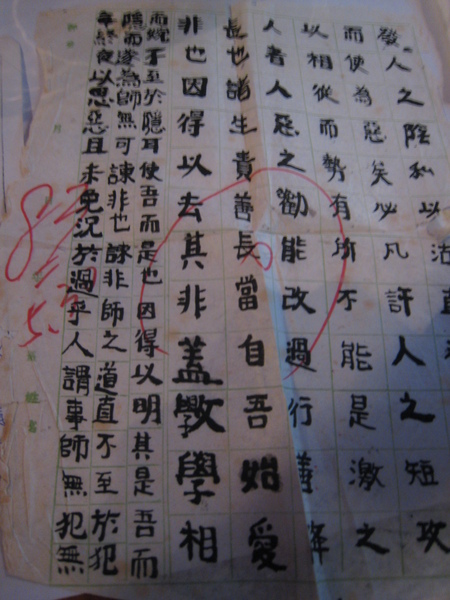 終夜以思惡且未免況於過乎人謂事師無犯無
隱而遂為師無可諫非也諫非師之道直不至於犯
而婉不至於隱耳使吾而是也因得以明其是吾而
非也因得以去其非蓋教學相
長也諸生責善長當自吾始愛
人者人惡之勸能改過行善降
以相從而勢有所不能是激之
而使為惡矣必凡訐人之短攻
發人之陰私以沽直